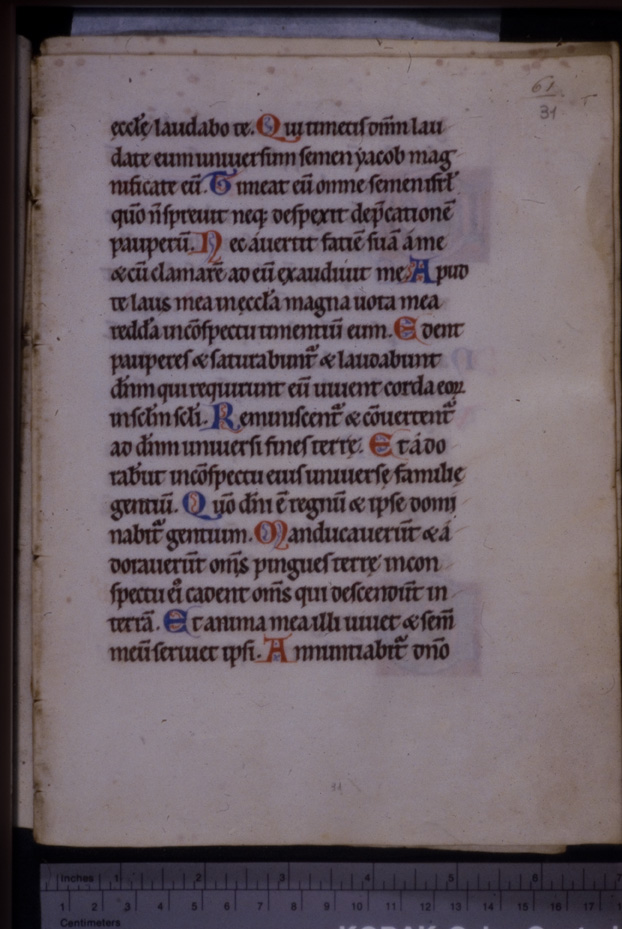 61
31
eccl̄e laudabo te. Qui timetis dn̄m lau
date eum univerſum ſemen yacob mag
nificate eū. Timeat eū omne ſemen iſrl̄
quō n̄ ſprevit neq; deſpexit dep̄cationē
pauperū. Nec avertit faciē ſuā a me
& cū clamarē ad eū exaudivit me. Apud
te laus mea in eccl̄a magna vota mea
reddā in cōſpectu timentiū eum. Edent
pauperes & ſaturabunt̄ & laudabunt
dn̄m qui requirunt eū vivent corda eoꝝ
in ſcl̄m ſcl̄i. Reminiſcent̄ & cōvertent̄
ad dn̄m univerſi fines terrę. Et ado
rabūt in cōſpectu eius univerſę familię
gentiū. Quō dn̄i ē regnū & ipſe domi
nabit̄ gentium. Manducaverūt & a
doraverūt om̄s pingues terrę in con
ſpectu ei cadent om̄s qui deſcendūt in
terrā. Et anima mea illi vivet & ſem̄
meū ſerviet ipſi. Annuntiabit̄ dn̄o
31
Inches 1 2 3 4 5 6 7
1 2 3 4 5 6 7 8 9 10 11 12 13 14 15 16 17
Centimeters